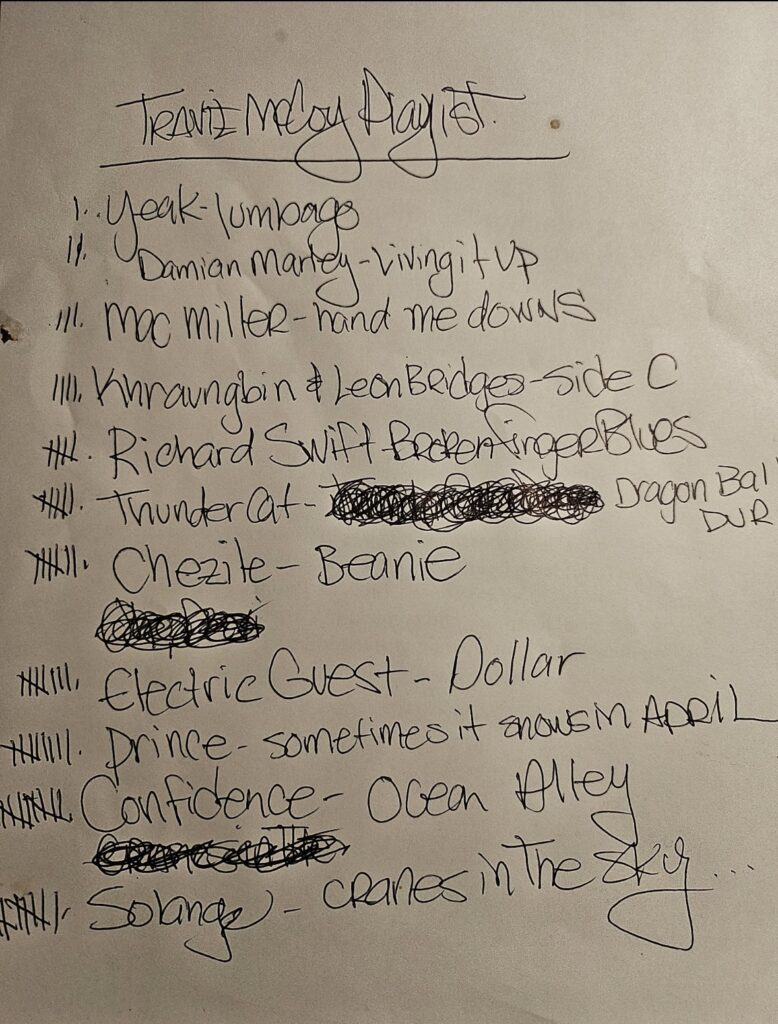 TRAVIE McCoy Playist.
I.. Yeak - lumbago
II. Damian Marley - Living it UP
III. Mac Miller - hand me downs
IIII. Khraungbin & Leon Bridges - Side C
5. Richard Swift - Broken Finger Blues
6. ThunderCat - Dragon Bal DUR
7. Chezile - Beanie
8. Electric Guest - Dollar
9. Prince - sometimes it snows in APRIL
10. Confidence - Ocean Alley
11. Solange - cranes in The Sky...